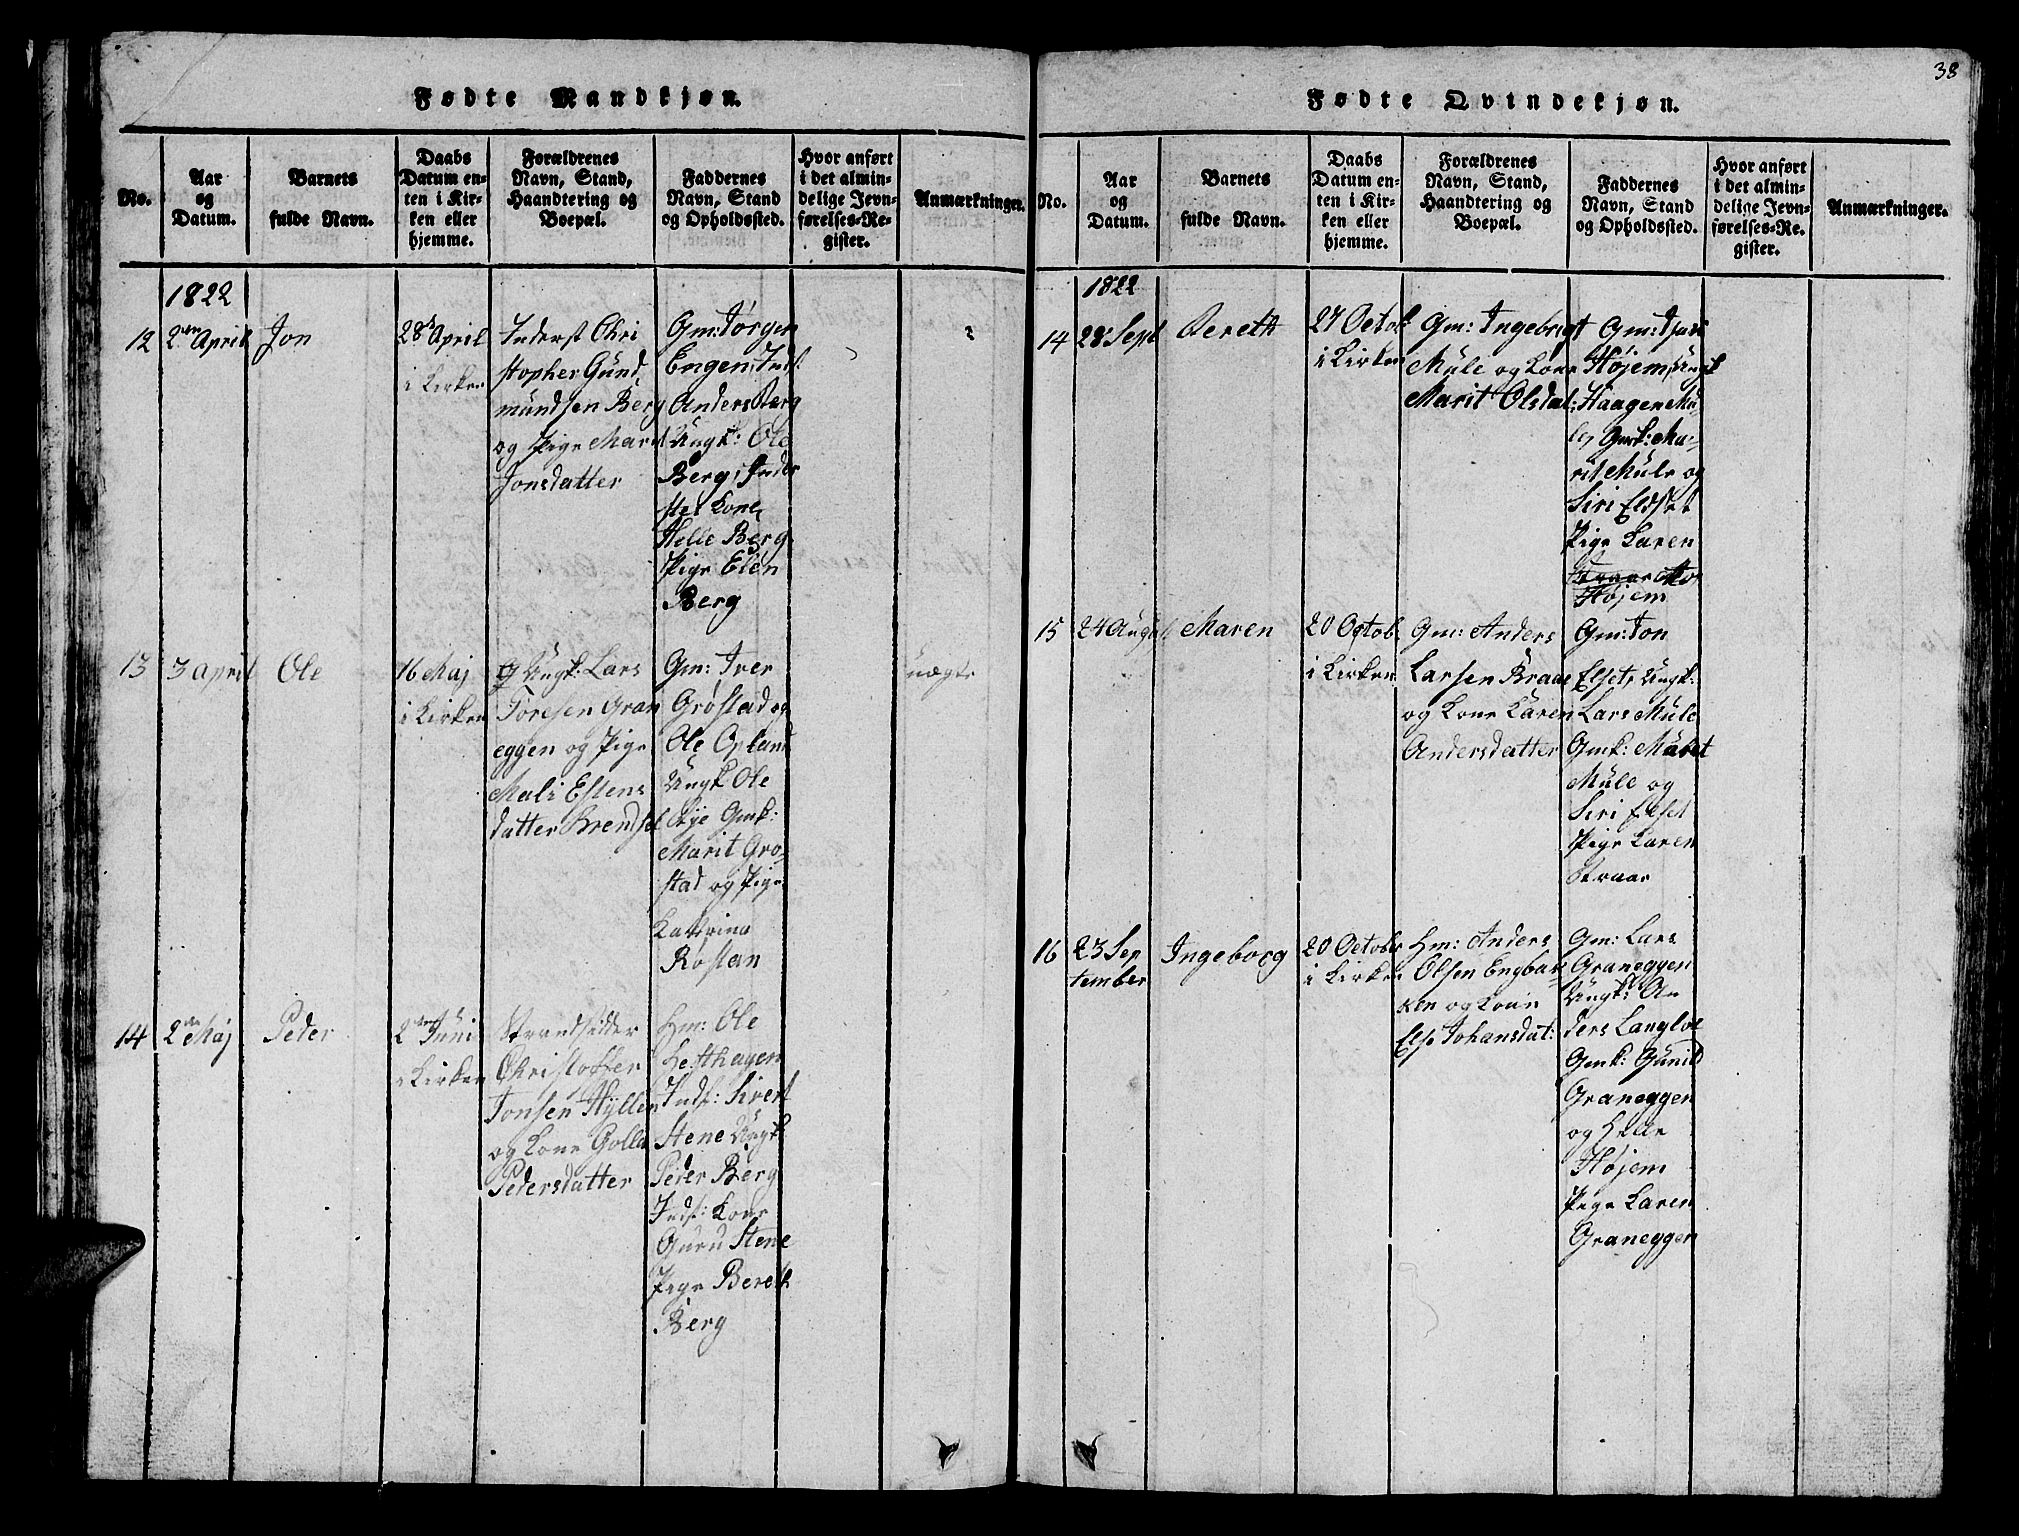 38
Fødte Mandkjøn.
No.
Aar
og
Datum.
Barnets
fulde Navn.
Daabs
Datum en-
ten i Kir-
ken eller
hjemme.
Forældrenes
Navn, Stand,
Haandtering og
Boepæl.
Faddernes
Navn, Stand
og Opholdssted.
Hvor anført
i det almin-
delige Jevn-
førelses-Re-
gister.
Anmærkninger.
1822
12
2den April
Jon
28de April
i Kirken
Inderst Chri
stopher Gund
mundsen Berg
og Pige Marit
Jonsdatter
Gm: Jørgen
Engen, Inds:
Anders Berg
Ungk: Ole
Berg, Inder
stes Kone
Helle Berg
Pige Elen
Berg
13
3 April
Ole
16 Maj
i Kirken
Ungk: Lars
Toresen Gran
eggen og Pige
Mali Estens
datter Brendset
Gm: Iver
Grøstad og
Ole Opland
Ungk Ole
Rye Gmk:
Marit Grø-
stad og Pige
Katrina
Roslan
uægte
14
2den Maj
Peder
2den Juni
i Kirken
Strandsidder
Christoffer
Jonsen Hyllen
og Kone Golla
Pedersdatter
Hm: Ole
Hesthagen
Inds: Sivert
Stene Ungk
Peder Berg
Inds: Kone
Guru Stene
Pige Berett
Berg
Fødte Qvindekjøn.
No.
Aar
og
Datum.
Barnets
fulde Navn.
Daabs
Datum en-
ten i Kir-
ken eller
hjemme.
Forældrenes
Navn, Stand,
Haandtering og
Boepæl.
Faddernes
Navn, Stand
og Opholdssted.
Hvor anført
i det almin-
delige Jevn-
førelses-Re-
gister.
Anmærkninger.
1822
14
28 Sept
Berett
27 Octob
i Kirken
Gm: Ingebrigt
Mule og Kone
Marit Olsdat:
Gm:
Højem, Ungk
Haagen Mu-
le, Gmk: Ma-
rit Mule og
Siri Elset
Pige Karen
Højem
15
24 August
Maren
20 Octob
i Kirken
Gm: Anders
Larsen Braae
og Kone Karen
Andersdatter
Gm: Jon
Elset, Ungk:
Lars Mule
Gmk: Marit
Mule og
Siri Elset
Pige Karen
Straar
16
23 Sep
tember
Ingeborg
20 October
i Kirken
Hm: Anders
Olsen Engbak-
ken og Kone
Else Johansdat:
Gm: Lars
Graneggen
Ungk: An
ders Langloe
Gmk: Gunild
Graneggen
og Helle
Højem
Pige Karen
Graneggen